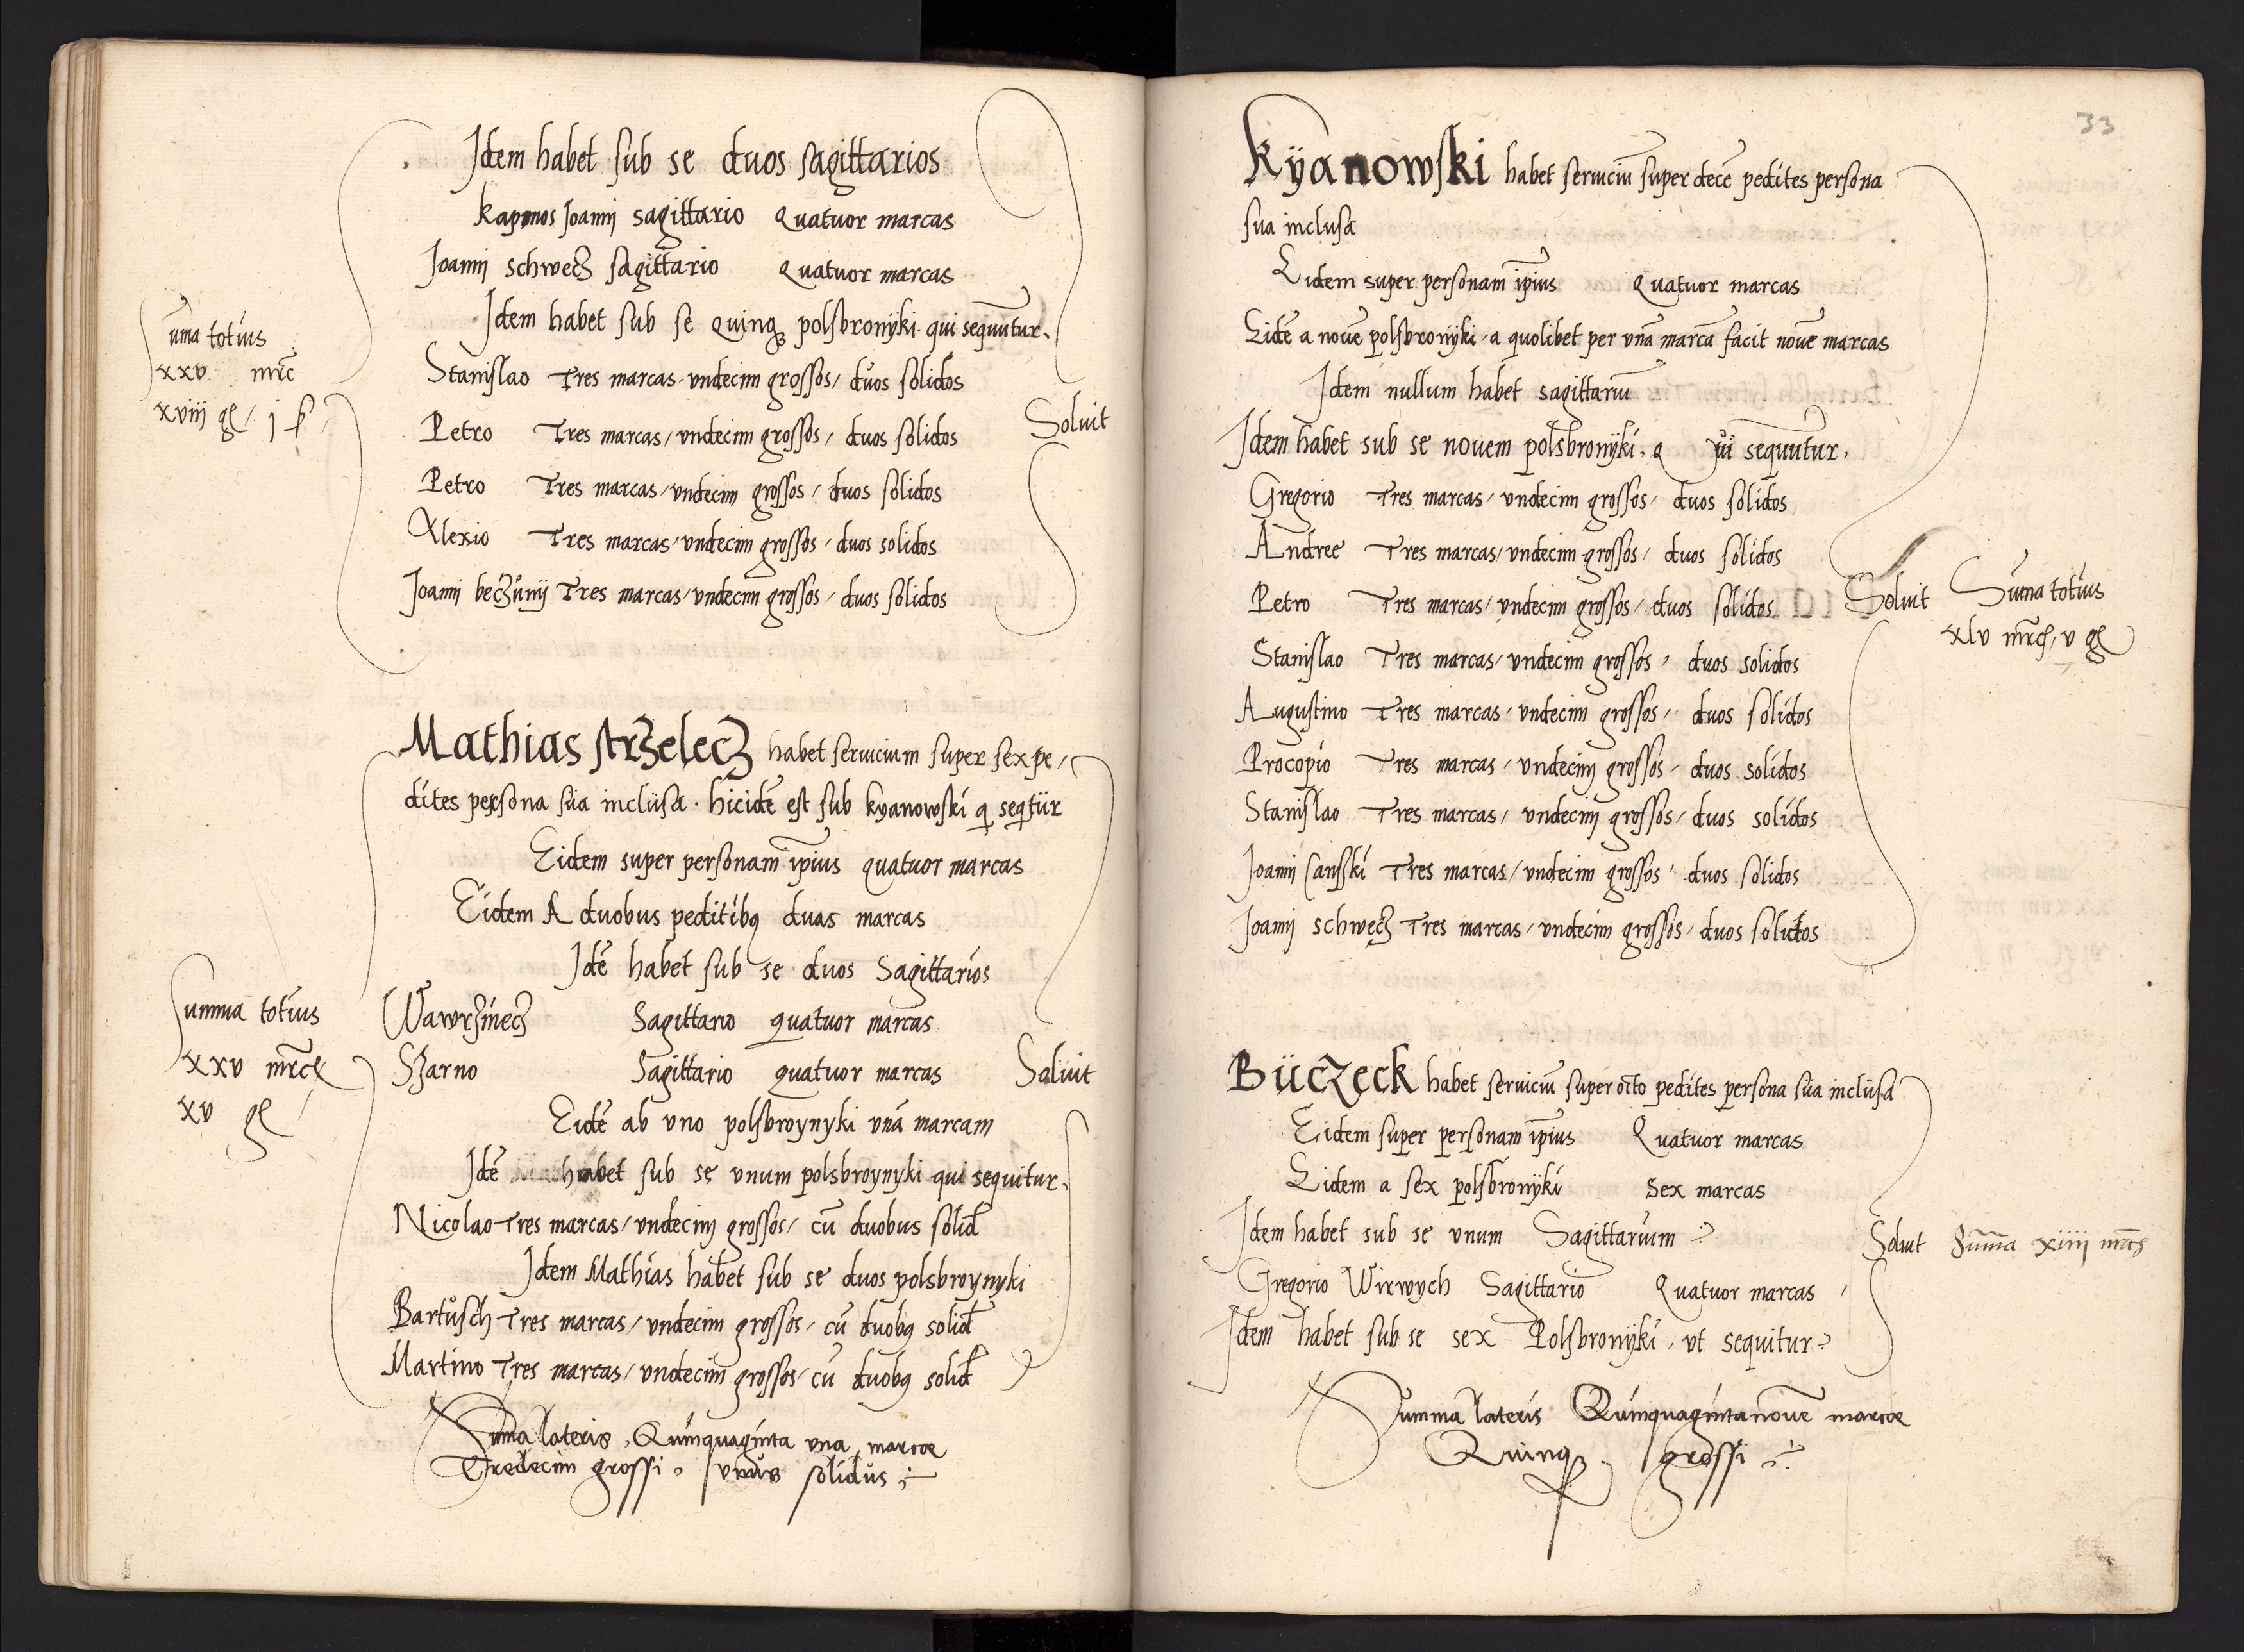 Idem habet sub se duos sagittarios
kapinos Joanni sagittario Quatuor marcas
Joanni schwecz sagittario Quatuor marcas
Idem habet sub se Quinqꝫ polsbronÿki qui sequūtur.
Stanislao Tres marcas, vndecim grossos, duos solidos
Petro Tres marcas, vndecim grossos, duos solidos
Petro Tres marcas, vndecim grossos, duos solidos
Alexio Tres marcas, vndecim grossos, duos solidos
Joanni Tres marcas, vndecim grossos, duos solidos
Soluit
uma totius
xxv mrc
xviij gꝭ, j ſ
Mathias strzelecz habet seruicium super sex pe,
dites persona sua inclusa. hicidē est sub kyanowski q seqtur
Eidem super personam ip̄ius quatuor marcas
Eidem A duobus peditibꝫ duas marcas
Idē habet sub se duos Sagittarios
Wawrzinecz Sagittario quatuor marcas
Szarno Sagittario quatuor marcas
Eidē ab vno polsbroynyki vnā marcam
Idē habet sub se vnum polsbroynyki qui sequitur.
Nicolao Tres marcas, vndecim grossos, cū duobus solid
Idem Mathias habet sub se duos polsbroynyki
Bartusch Tres marcas, vndecim grossos, cū duobꝫ solid
Martino Tres marcas, vndecim grossos, cū duobꝫ solid
Soluit
Summa totius
xxv mrcꝭ
xv gꝭ
Suma lateris, Quinquaginta vna marcae
Tredecim grossi, vnus solidus
33
Kÿanowski habet seruiciū super decē pedites persona
sua inclusa
Eidem super personam ip̄ius Quatuor marcas
Eidē a nouē polsbronyki, a quolibet per vnā marcā facit nouē marcas
Idem nullum habet sagittariū
Idem habet sub se nouem polsbronÿki, q ui sequūtur,
Gregorio Tres marcas, vndecim grossos, duos solidos
Andree Tres marcas, vndecim grossos, duos solidos
Petro Tres marcas, vndecim grossos, duos solidos
Stanislao Tres marcas, vndecim grossos, duos solidos
Augustino Tres marcas, vndecim grossos, duos solidos
Procopio Tres marcas, vndecim grossos, duos solidos
Stanislao Tres marcas, vndecim grossos, duos solidos
Joanni Tres marcas, vndecim grossos, duos solidos
Joanni schwecz Tres marcas, vndecim grossos, duos solidos
Soluit
Suma totius
xlv mrcꝭ, v gꝭ
Buczeck habet seruiciū super octo pedites persona sua inclusa
Eidem super personam ip̄ius Quatuor marcas
Eidem a sex polsbronÿki Sex marcas
Idem habet sub se vnum Sagittarium
Gregorio Wirwych Sagittario Quatuor marcas
Idem habet sub se sex Polsbronÿki, vt sequitur
Soluit
Sum̄a xiiij mrcꝭ
Summa lateris Quinquaginta nouē marcae
Quinqꝫ grossi